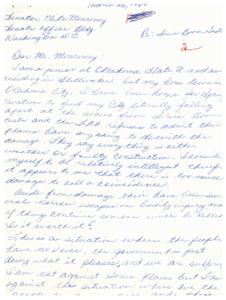 March 26, 1964
Senator Mike Monroney
Senate Office Bldg.
Washington D.C.
Re: Sonic Boom Tests
2
Dear Mr. Monroney
I am a junior at Oklahoma State U. and am
residing in Stillwater. But my home is in
Oklahoma City. I have been home for
to find my City literally falling
apart at the seams from Sonic Boom
tests and the FAA refuses to admit their
planes have anything to do with the
damage. They say everything is either
weather or faulty construction. I consider
myself to be relatively intelligent therefore
it appears to me that there is too much
damage to call a coincidence.
Aside from damage there have been
several narrow escapes on bodily injury and
if things continue someone will be killed
Is it worth it?
This is a situation where the people
have no voice, the government is just
doing what it pleases, and we are suffering
I am not against Sonic Planes but I am
against this situation where